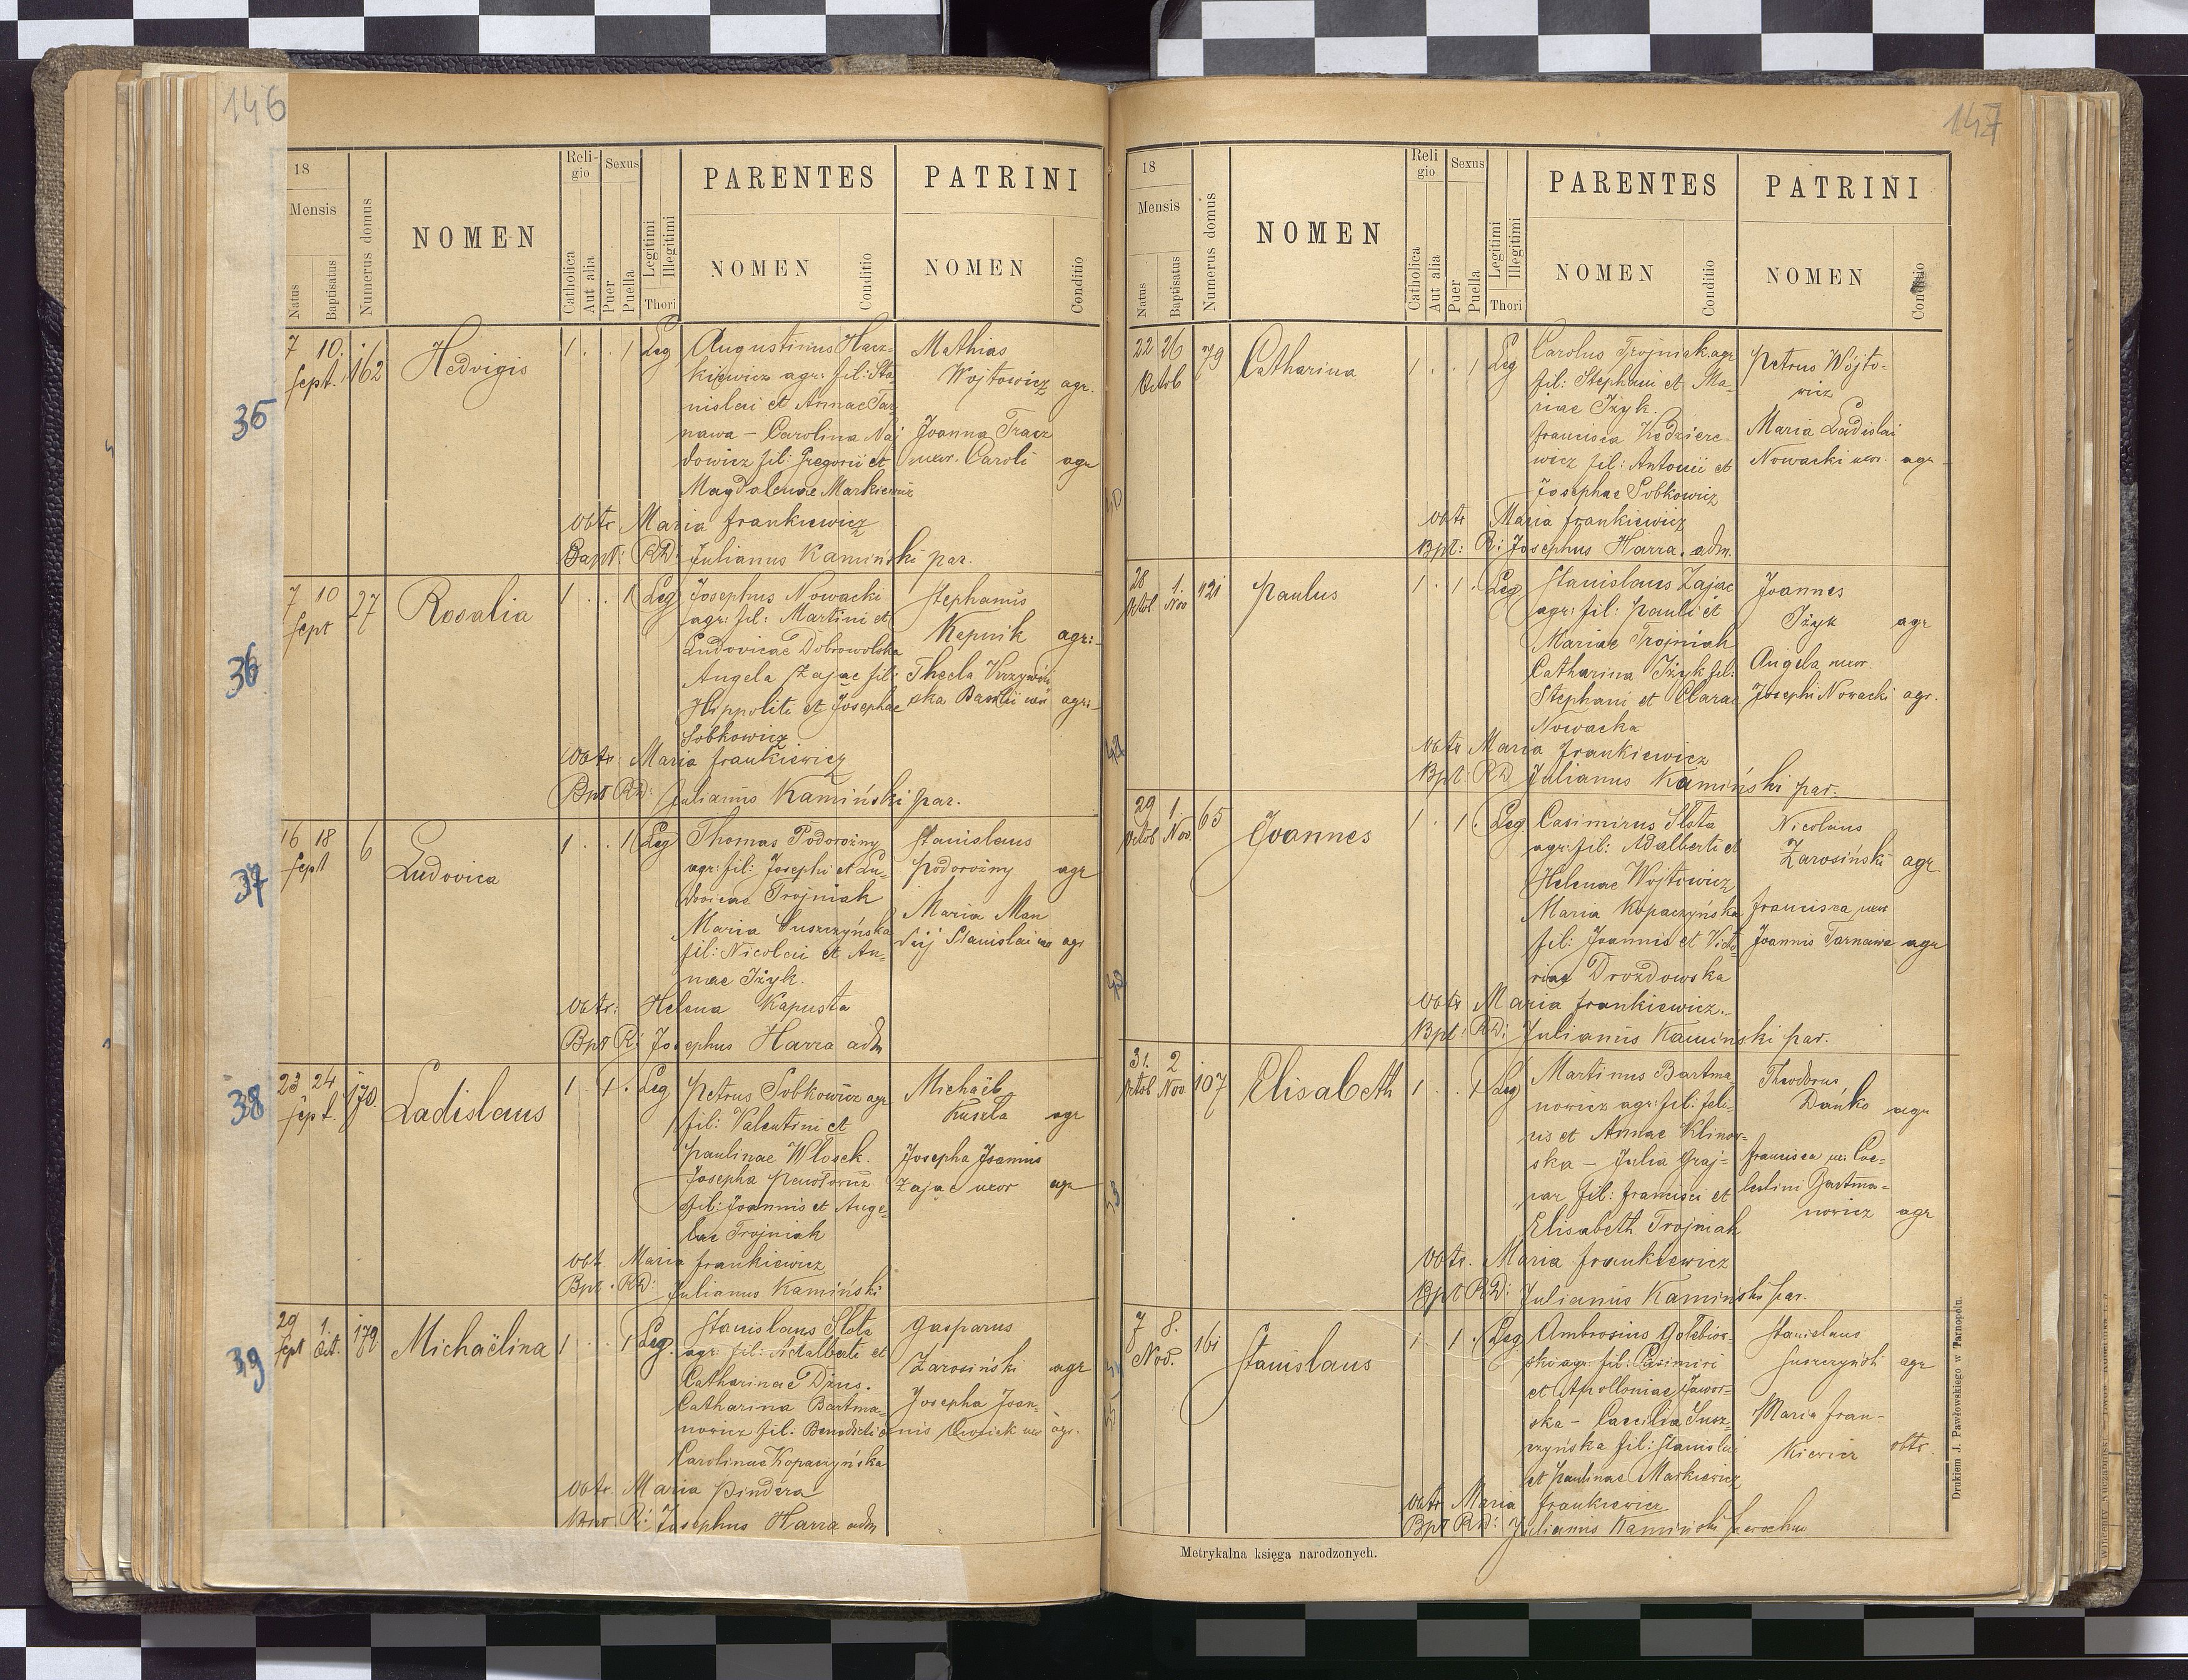 146
18
Mensis
Natus
Baptisatus
Numerus domus
NOMEN
Religio
Catholica
Aut alia
Sexus
Puer
Puella
Legitimi
Illegitimi
Thori
PARENTES
NOMEN
Conditio
PATRINI
NOMEN
Conditio
35
7 10.
Sept.
162
Hedvigis
1 . . 1 Leg
Augustinus Hacz-
kiewicz agr: fil: Sta-
nislai et Annae Tar-
nawa - Carolina Naj
dowicz fil: Gregorii et
Magdalenae Markiewicz
Mathias
Wojtowicz agr.
Joanna Tracz
uxor. Caroli agr
Obtr Maria Frankiewicz
Bapt: RD: Julianus Kamiński par.
36
7 10
Sept
27
Rosalia
1 . . 1 Leg
Josephus Nowacki
agr: fil: Martini et
Ludovicae Dobrowolska
Angela Zając fil:
Hippoliti et Josephae
Sobkowicz
Stephanus
Kepnik agr:
Thecla
ska Basilii uxor agr:
Obtr: Maria Frankiewicz
Bpt RD: Julianus Kamiński par.
37
16 18
Sept
6
Ludovica
1 . . 1 Leg
Thomas Podorożny
agr: fil: Josephi et Lu-
dovicae Trojniak
Maria Suszczyńska
fil: Nicolai et An-
nae Iżyk.
Stanislaus
Podorożny agr
Maria Man
dzij Stanislai uxor agr
Obtr: Helena Kapusta
Bpt R: Josephus Harra adm
38
23 24
Sept.
170
Ladislaus
1 . 1 . Leg
Petrus Sobkowicz agr
fil: Valentini et
Paulinae Włosek.
Josepha
fil: Joannis et Ange-
lae Trojniak
Michaël
Kuszła agr
Josepha Joannis
Zając uxor agr
obt. Maria Frankiewicz
Bpt. RD: Julianus Kamiński
39
29 1.
Sept Oct.
179
Michaëlina
1 . . 1 Leg.
Stanislaus Słota
agr: fil: Adalberti et
Catharinae Dżus.
Catharina Bartma-
nowicz fil: Benedicti et
Carolinae Kopaczyńska
Gasparus
Zarosiński agr
Josepha Joan-
nis uxor agr.
Obtr. Maria Pindera
Bpt R: Josephus Harra adm
147
18
Mensis
Natus
Baptisatus
Numerus domus
NOMEN
Religio
Catholica
Aut alia
Sexus
Puer
Puella
Legitimi
Illegitimi
Thori
PARENTES
NOMEN
Conditio
PATRINI
NOMEN
Conditio
22 26
Octob
79
Catharina
1 . . 1 Leg
Carolus Trojniak agr
fil: Stephani et Ma-
riae Iżyk.
Francisca Kędziere-
wicz fil: Antonii et
Josephae Sobkowicz
Petrus Wójto-
wicz
Maria Ladislai
Nowacki uxor. agr
Obtr Maria Frankiewicz
Bpt: R: Josephus Harra. adm.
28 1.
Octob Nov
121
Paulus
1 . 1 . Leg
Stanislaus Zając
agr: fil: Pauli et
Mariae Trojniak
Catharina Iżyk fil:
Stephani et Clarae
Nowacka
Joannes
Iżyk agr
Angela uxor.
Josephi Nowacki agr.
Obtr Maria Frankiewicz
Bpt: RD Julianus Kamiński par.
29 1.
Octob Nov
65
Joannes
1 . 1 . Leg
Casimirus Słota
agr: fil: Adalberti et
Helenae Wojtowicz
Maria Kopaczyńska
fil: Joannis et Victo
riae Drozdowska
Nicolaus
Zarosiński agr.
Francisca uxor
Joannis Tarnawa agr
Obtr Maria Frankiewicz.
Bpt: RD: Julianus Kamiński par.
31. 2
Octob Nov
107
Elisabeth
1 . . 1 Leg
Martinus Bartma-
nowicz agr: fil: Feli-
cis et Annae Klinow-
ska - Julia Graj-
par fil: Francisci et
Elisabeth Trojniak
Theodorus
Dańko agr
Francisca ux: Coe-
lestini Bartma-
nowicz agr
Obtr. Maria Frankiewicz
Bpt RD: Julianus Kamiński par.
7 8.
Nov.
161
Stanislaus
1 . 1 . Leg
Ambrosius Gołębiow-
ski agr. fil: Casimiri
et Apolloniae Jawor-
ska - Caecilia Susz-
czyńska fil: Stanislai
et Paulinae Markiewicz
Stanislaus
Suszczyński agr
Maria Fran-
kiewicz obtr.
Obtr Maria Frankiewicz
Bpt RD: Julianus Kamiński parochus
Metrykalna księga narodzonych.
Drukiem J. Pawłowskiego w Tarnopolu.